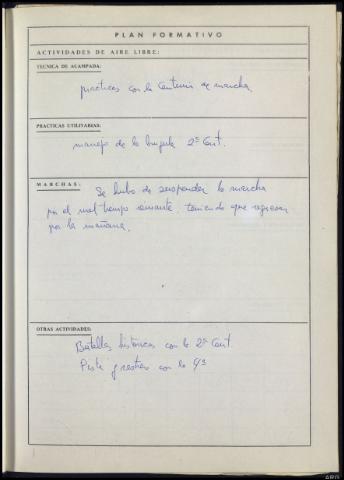 PLAN FORMATIVO
ACTIVIDADES DE AIRE LIBRE:
TECNICA DE ACAMPADA:
practicas con la Centuria de marcha
PRACTICAS UTILITARIAS:
manejo de la brujula 2ª Cent.
MARCHAS:
Se hubo de suspender la marcha
por el mal tiempo reinante, teniendo que regresar
por la mañana.
OTRAS ACTIVIDADES:
Batallas históricas con la 2ª Cent
Pista y rastreo con la 4ª